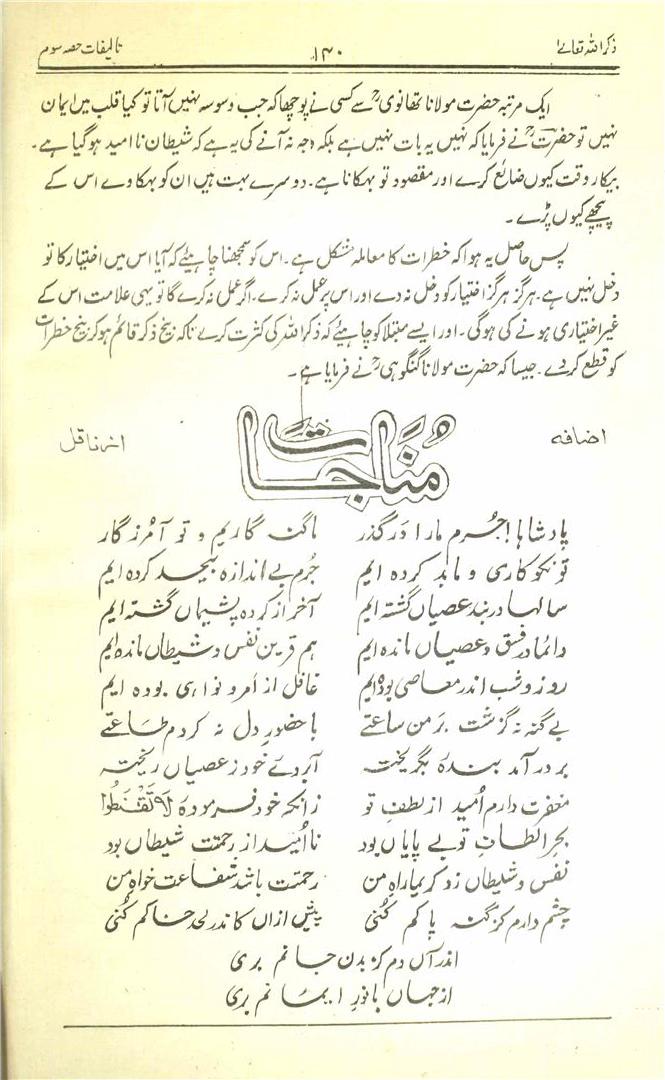 ذکر اللہ تعالےٰ ۱۴۰ تالیفات حصہ سوم
ایک مرتبہ حضرت مولانا تھانویؒ سے کسی نے پوچھا کہ جب وسوسہ نہیں آتا تو کیا قلب میں ایمان
نہیں تو حضرتؒ نے فرمایا کہ نہیں یہ بات نہیں ہے بلکہ وجہ نہ آنے کی یہ ہے کہ شیطان نا امید ہو گیا ہے۔
بیکار وقت کیوں ضائع کرے اور مقصود تو بہکانا ہے۔ دوسرے بہت ہیں ان کو بہکاوے اس کے
پیچھے کیوں پڑے۔
پس حاصل یہ ہوا کہ خطرات کا معاملہ مشکل ہے۔ اس کو سمجھنا چاہیئے کہ آیا اس میں اختیار کا تو
دخل نہیں ہے۔ ہرگز ہرگز اختیار کو دخل نہ دے اور اس پر عمل نہ کرے۔ اگر عمل نہ کرے گا تو یہی علامت اس کے
غیر اختیاری ہونے کی ہوگی۔ اور ایسے مبتلا کو چاہیئے کہ ذکر اللہ کی کثرت کرے تاکہ بیخ ذکر قائم ہو کر بیخ خطرات
کو قطع کر دے۔ جیسا کہ حضرت مولانا گنگوہیؒ نے فرمایا ہے۔
اضافہ مُنَاجات از ناقل
پادشاہا! جُرم مارا دَر گذر ما گنہ گاریم و تو آمُرزگار
تو نکوکاری و ما بد کردہ ایم جُرم بے اندازہ بیحد کردہ ایم
سالہا در بند عصیاں گشتہ ایم آخر از کردہ پشیماں گشتہ ایم
دائما در فسق و عصیاں ماندہ ایم ہم قرین نفس و شیطاں ماندہ ایم
روز و شب اندر معاصی بودہ ایم غافل از اَمر و نواہی بودہ ایم
بے گنہ نہ گزشت بر من ساعتے با حضورِ دل نہ کردم طاعتے
بر در آمد بندۂ بگریختہ آبروئے خود ز عصیاں ریختہ
مغفرت دارم اُمید از لطفِ تو زانکہ خود فرمودۂ لَا تَقْنَطُوْا
بحر الطافِ تو بے پایاں بود نا اُمید از رحمتت شیطاں بود
نفس و شیطاں زد کریما راہِ من رحمتت باشد شفاعت خواہِ من
چشم دارم کز گنہ پاکم کُنی پیش ازاں کاندر لحد خاکم کُنی
اندر آں دم کز بدن جانم بری
از جہاں با نورِ ایمانم بری